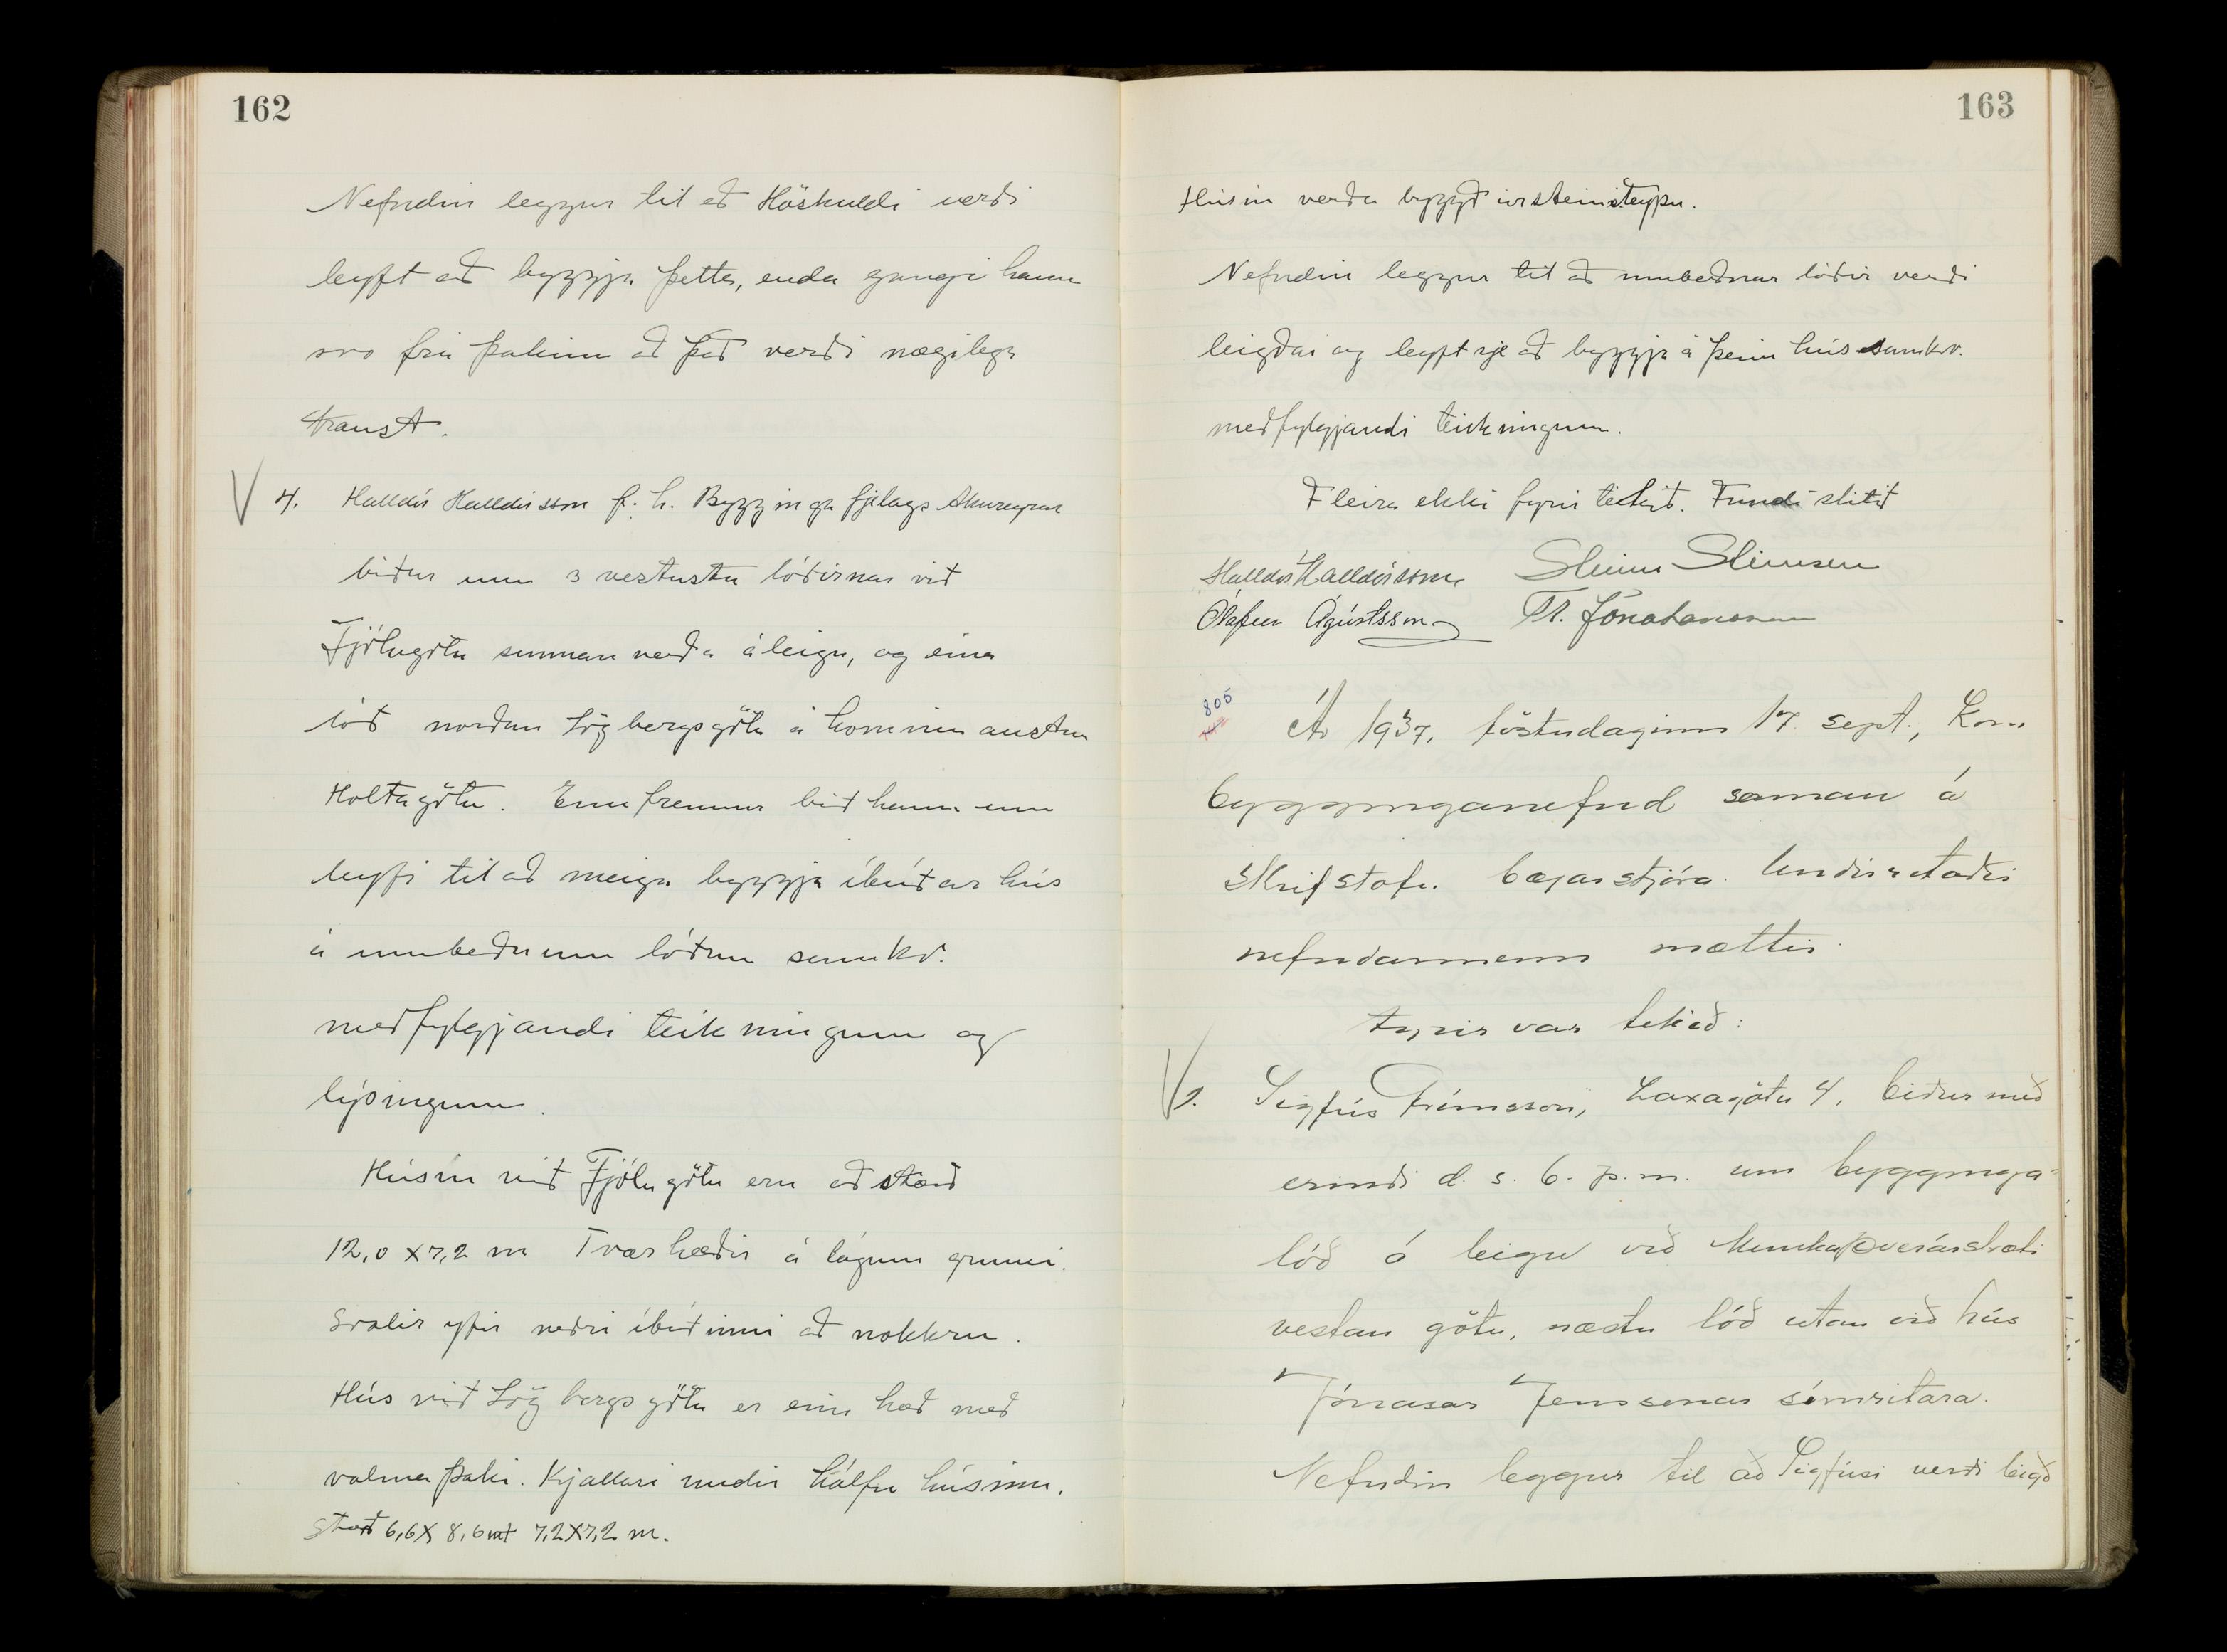 162
Nefndin leggur til að Höskuldi verði
leyft að byggja þetta, enda gangi hann
svo frá þakinu að það verði nægilega
traust.
4. Halldór Halldórsson f. h. Byggingafjelags Akureyrar
biður um 3 vestustu lóðirnar við
Fjólugötu sunnanverða á leigu, og eina
lóð norðan Lögbergsgötu á horninu austan
Holtagötu. Ennfremur bið hann um
leyfi til að meiga byggja íbúðarhús
á umbeðnum lóðum samkv.
meðfylgjandi teikningum og
lýsingum.
Húsin við Fjólugötu eru að stærð
12,0 x 7,2 m Tvær hæðir á lágum grunni.
Svalir yfir neðri íbúðinni að nokkru.
Hús við Lögbergsgötu er ein hæð með
valmaþaki. Kjallari undir hálfu húsinu.
Stærð 6,6 x 8,6 mt 7,2 x 7,2 m.
163
Húsin verða byggð úr steinsteypu.
Nefndin leggur til að umbeðnar lóðir verði
leigðar og leyft sje að byggja á þeim hús samkv.
meðfylgjandi teikningum.
Fleira ekki fyrir tekið. Fundi slitið
Halldór Halldórsson Steinn Steinsen
Ólafur Ágústsson Tr. Jónatansson
805
Ár 1937, föstudaginn 17. sept., kom
bygginganefnd saman á
skrifstofu bæjarstjóra. Undirritaðir
nefndarmenn mættir.
Fyrir var tekið:
1. Sigfús Grímsson, Laxagötu 4, biður með
erindi d. s. 6. þ. m. um bygginga-
lóð á leigu við Munkaþverárstræti
vestan götu, næstu lóð utan við hús
Jónasar Jenssonar símritara.
Nefndin leggur til að Sigfúsi verði leigð